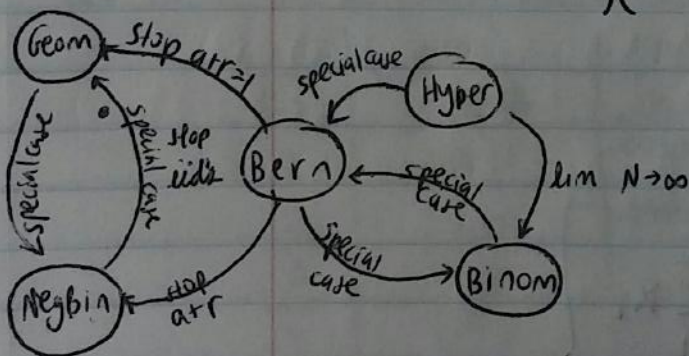 Geom
stop at r=1
special case
Hyper
special case
special case
stop
iid's
Bern
special
case
lim N→∞
special
case
Binom
NegBin
stop
at r